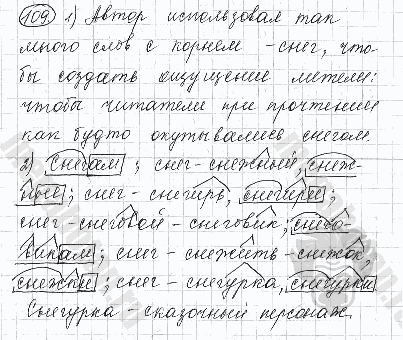 109) 1) Автор использовал так
много слов с корнем -снег, что-
бы создать ощущение метели:
чтобы читатели при прочтении
как будто окутывались снегом.
2) снегам; снег - снежный, снеж-
ные; снег - снегирь, снегири;
снег - снеговой - снеговик, снего-
викам; снег - снежить - снежок,
снежки; снег - снегурка, снегурки
Снегурка - сказочный персонаж.